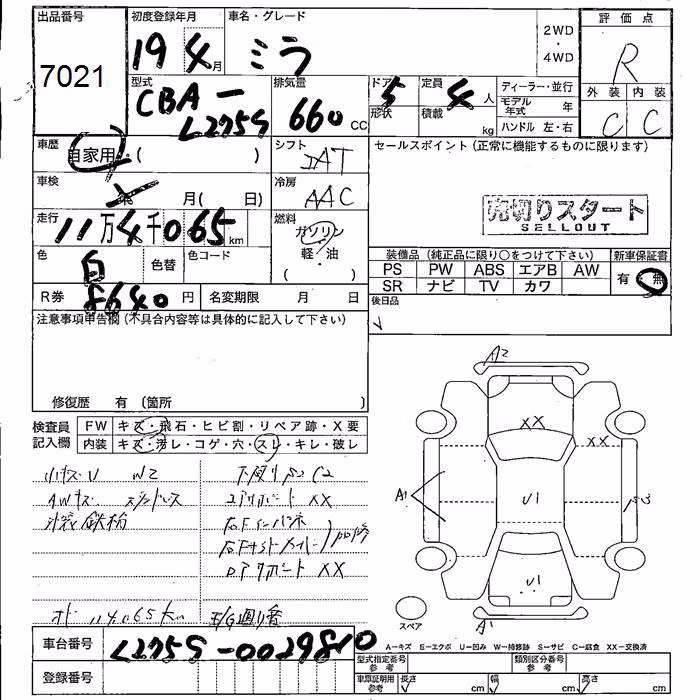 出品番号
7021
初度登録年月
19 4月
車名・グレード
ミラ
2WD
・
4WD
評価点
R
外装 内装
C C
型式
CBA－
L275S
排気量
660 CC
ドア 5
形状
定員 4人
積載 kg
ディーラー・並行
モデル年式 年
ハンドル 左・右
車歴 自家用 ( )
シフト
車検 年 月( 日)
冷房
AAC
走行 11万4千065km
燃料
ガソリン
軽・油
色 白
色替
色コード
R券 8640円
名変期限 月 日
セールスポイント (正常に機能するものに限ります)
売切りスタート
SELLOUT
装備品 (純正品に限り○をつけて下さい)
新車保証書
PS PW ABS エアB AW
SR ナビ TV カワ
有・無
後日品
注意事項申告欄 (不具合内容等は具体的に記入して下さい)
修復歴 有 (箇所 )
検査員
記入欄
FW キズ・飛石・ヒビ割・リペア跡・X要
内装 キズ・汚レ・コゲ・穴・スレ・キレ・破レ
小キズ U W2
AWキズ
下廻り C2
XX
XX
114065km
A2
XX
XX
A1
U1
U1
A1
スペア
A－キズ E－エクボ U－凹み W－補修跡 S－サビ C－腐食 XX－交換済
車台番号 L275S-0029810
登録番号
型式指定番号
参考
類別区分番号
参考
車庫証明用
参考
長さ cm 幅 cm 高さ cm